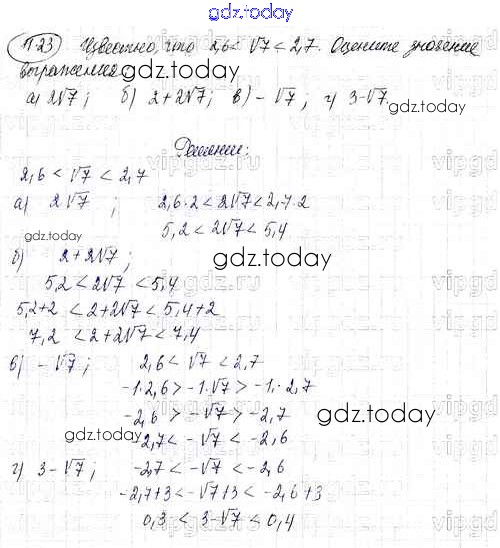 gdz.today
1123 Известно, что 2,6 < √7 < 2,7. Оцените значение
выражения
gdz.today
а) 2√7; б) 2+2√7; в) -√7; г) 3-√7.
Решение:
2,6 < √7 < 2,7
а) 2√7; 2,6·2 < 2√7 < 2,7·2
5,2 < 2√7 < 5,4
gdz.today
б) 2+2√7;
gdz.today
5,2 < 2√7 < 5,4
5,2+2 < 2+2√7 < 5,4+2
7,2 < 2+2√7 < 7,4
в) -√7; 2,6 < √7 < 2,7
-1·2,6 > -1·√7 > -1·2,7
-2,6 > -√7 > -2,7
gdz.today
gdz.today
-2,7 < -√7 < -2,6
г) 3-√7; -2,7 < -√7 < -2,6
-2,7+3 < -√7+3 < -2,6+3
0,3 < 3-√7 < 0,4